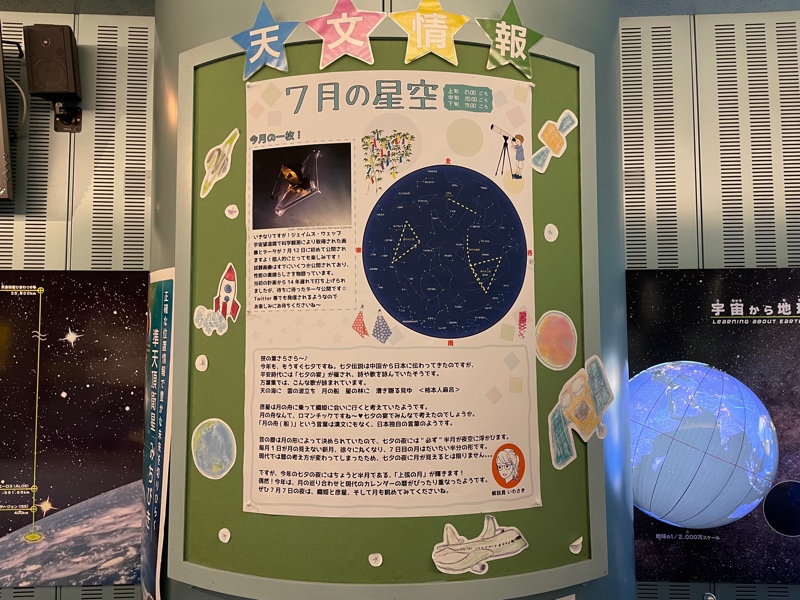 天文情報
7月の星空
上旬 21:00ごろ
中旬 20:00ごろ
下旬 19:00ごろ
今月の一枚！
いきなりですが！ジェイムズ・ウェッブ
宇宙望遠鏡で科学観測により取得された画
像とデータが7月12日に初めて公開され
ますよ！個人的にとっても楽しみです！
試験画像はすでにいくつか公開されており、
性能の素晴らしさを物語っています。
当初の計画から14年遅れて打ち上げられ
ましたが、待ちに待ったデータ公開です☆
Twitter等でも発信されるようなので
お楽しみにお待ちくださいね～
北
南
笹の葉さらさら～♪
今年も、もうすぐ七夕ですね。七夕伝説は中国から日本に伝わってきたのですが、
平安時代には「七夕の宴」が催され、詩や歌を詠んでいたそうです。
万葉集では、こんな歌が詠まれています。
天の海に 雲の波立ち 月の船 星の林に 漕ぎ隠る見ゆ ＜柿本人麻呂＞
彦星は月の舟に乗って織姫に会いに行くと考えていたようです。
月の舟なんて、ロマンチックですね～♥七夕の宴でみんなで考えたのでしょうか。
「月の舟（船）」という言葉は漢文にもなく、日本独自の言葉のようです。
昔の暦は月の形によって決められていたので、七夕の夜には“必ず”半月が夜空に浮かびます。
毎月1日が月の見えない新月、徐々に丸くなり、7日目の月はだいたい半分の形です。
現代では暦の考え方が変わってしまったため、七夕の夜に月が見えるとは限りません...
ですが、今年の七夕の夜にはちょうど半月である、「上弦の月」が輝きます！
偶然！今年は、月の巡り合わせと現代のカレンダーの暦がぴったり重なったようです。
ぜひ7月7日の夜は、織姫と彦星、そして月も眺めてみてくださいね。
解説員 いわさき
正確な位置情報で豊かな未来を切りひらく
準天頂衛星「みちびき
宇宙から地球
LEARNING ABOUT EARTH
地球の1/2,000万スケール